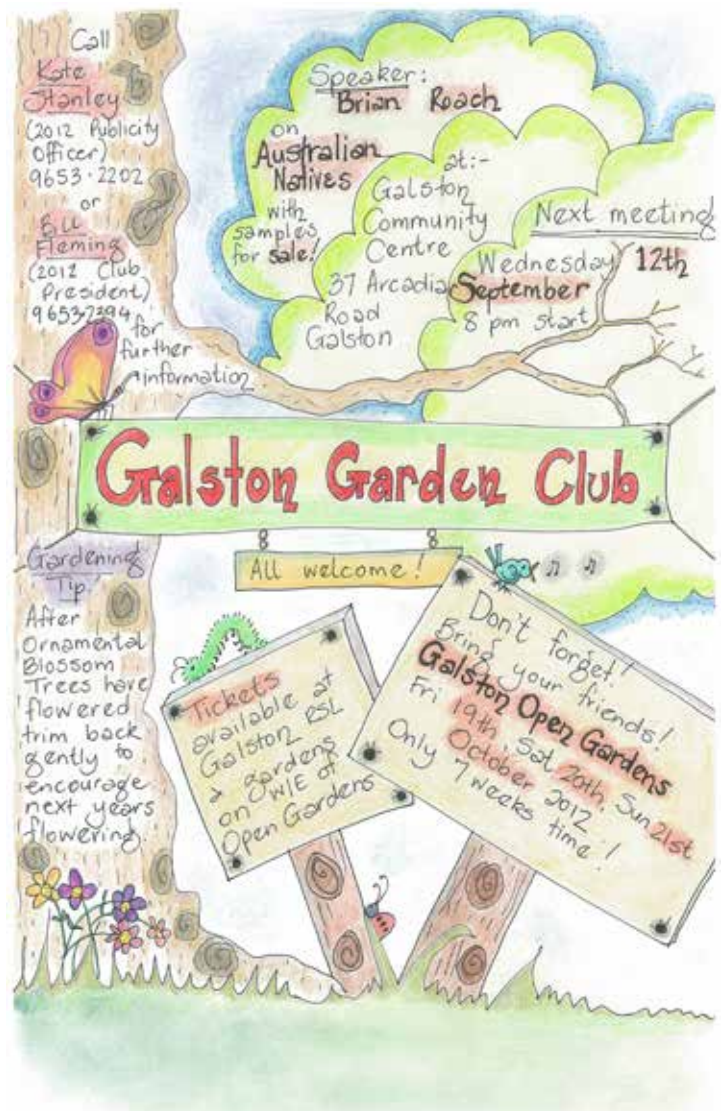 Call
Kate
Stanley
(2012 Publicity
Officer)
9653·2202
or
Bill
Fleming
(2012 Club
President)
9653·2394
for
further
information.
Speaker:
Brian Roach
on
Australian
Natives
with
samples
for sale!
at:-
Galston
Community
Centre
37 Arcadia
Road
Galston
Next meeting
Wednesday 12th
September
8 pm start
Galston Garden Club
All welcome!
Gardening
Tip.
After
Ornamental
Blossom
Trees have
flowered
trim back
gently to
encourage
next years
flowering.
Tickets
available at
Galston RSL
& gardens
on W/E of
Open Gardens
Don't forget!
Bring your friends!
Galston Open Gardens
Fri 19th, Sat 20th, Sun 21st
October 2012.
Only 7 weeks time!